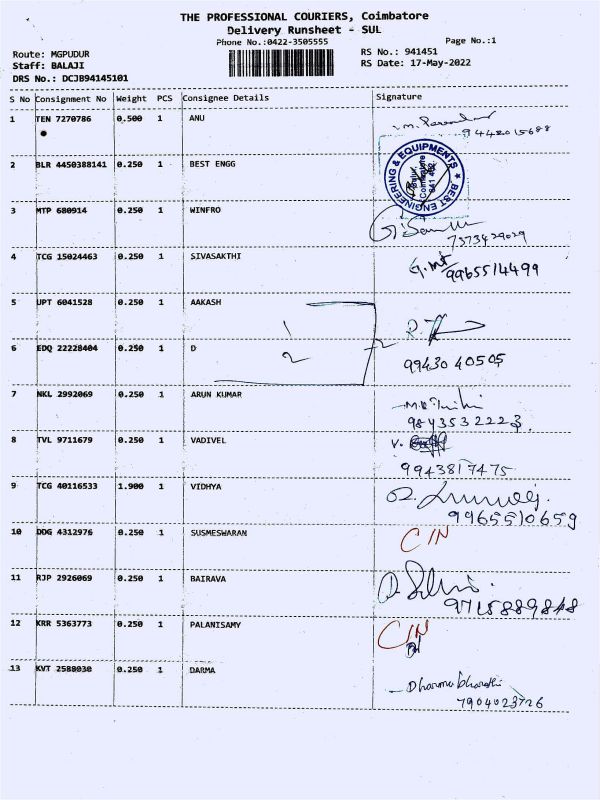 THE PROFESSIONAL COURIERS, Coimbatore
Delivery Runsheet - SUL
Phone No.:0422-3505555
Page No.:1
Route: MGPUDUR
RS No.: 941451
Staff: BALAJI
RS Date: 17-May-2022
DRS No.: DCJB94145101
S No Consignment No Weight PCS Consignee Details Signature
1 TEN 7270786 0.500 1 ANU
9442015688
2 BLR 4450388141 0.250 1 BEST ENGG
BEST ENGINEERING & EQUIPMENTS
Coimbatore
3 MTP 680914 0.250 1 WINFRO
7373429029
4 TCG 15024463 0.250 1 SIVASAKTHI
9965514499
5 UPT 6041528 0.250 1 AAKASH
1
2
6 EDQ 22228404 0.250 1 D
99430 40505
7 NKL 2992069 0.250 1 ARUN KUMAR
9843532223
8 TVL 9711679 0.250 1 VADIVEL
9943817475
9 TCG 40116533 1.900 1 VIDHYA
9965510659
10 DDG 4312976 0.250 1 SUSMESWARAN CIN
11 RJP 2926069 0.250 1 BAIRAVA
9715889848
12 KRR 5363773 0.250 1 PALANISAMY CIN
13 KVT 2588030 0.250 1 DARMA
Dharma bharathi
7904023726